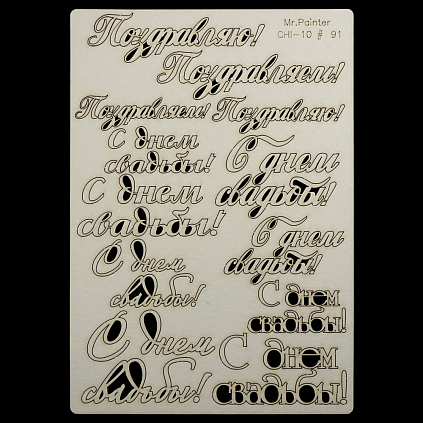 Mr.Painter
CHI-10 # 91
Поздравляю!
Поздравляем!
Поздравляем! Поздравляю!
С днем
свадьбы!
С днем
свадьбы!
С днем
свадьбы!
С днем
свадьбы!
С днем
свадьбы!
С днем
свадьбы!
С днем
свадьбы!
С днем
свадьбы!